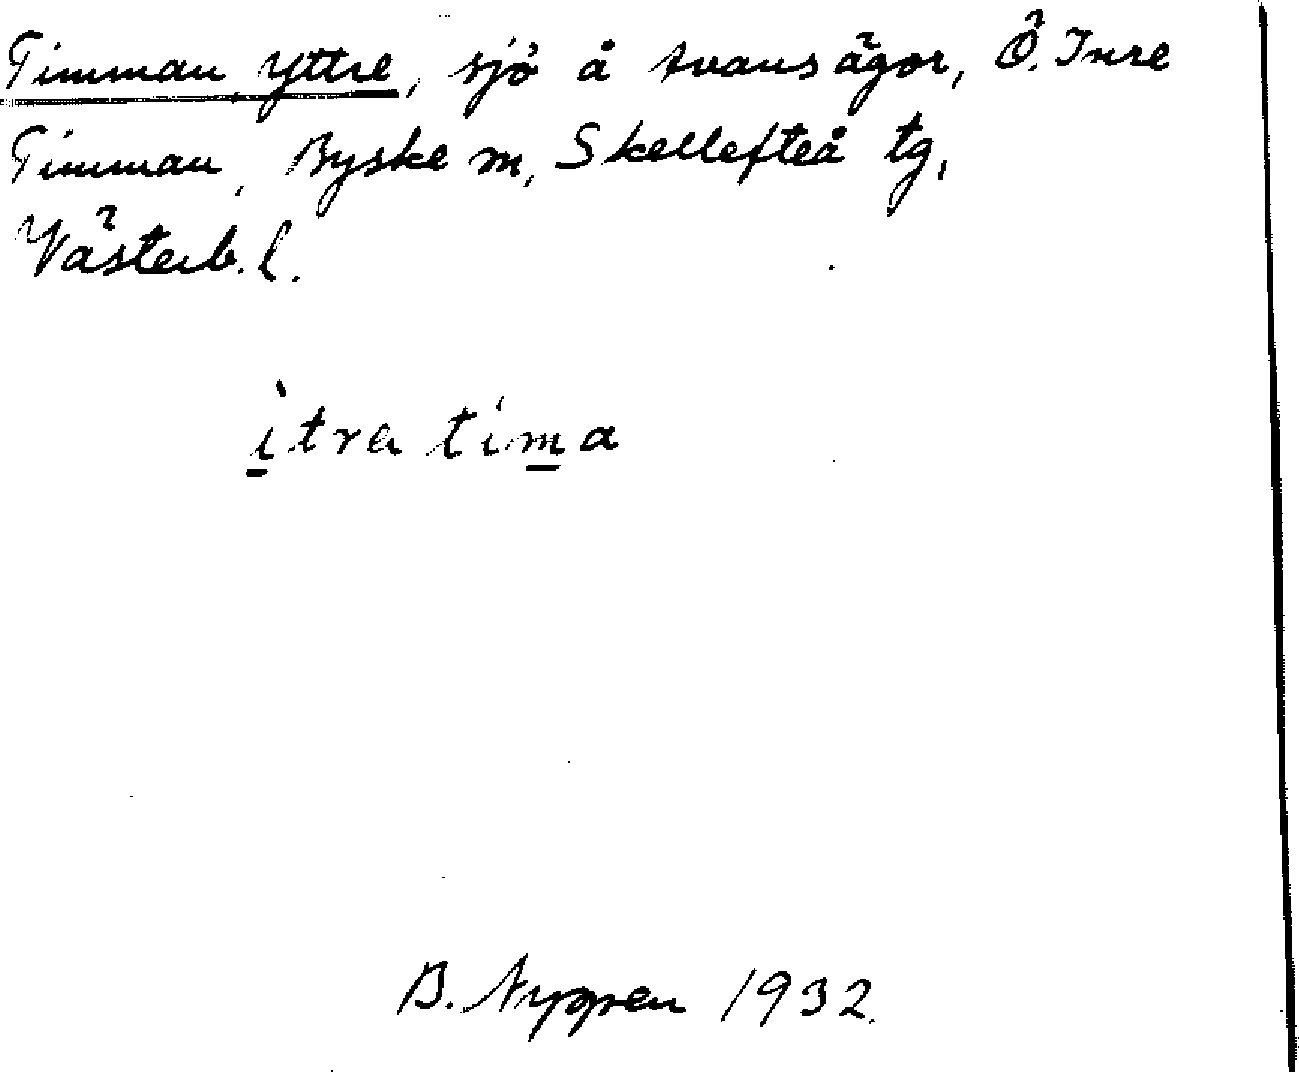 Timman, Yttre, sjö å tvansägor, Ö. Inre
Timman, Byske sn, Skellefteå tg,
Västerb. l.
ìtra tíma
B. Nygren 1932.